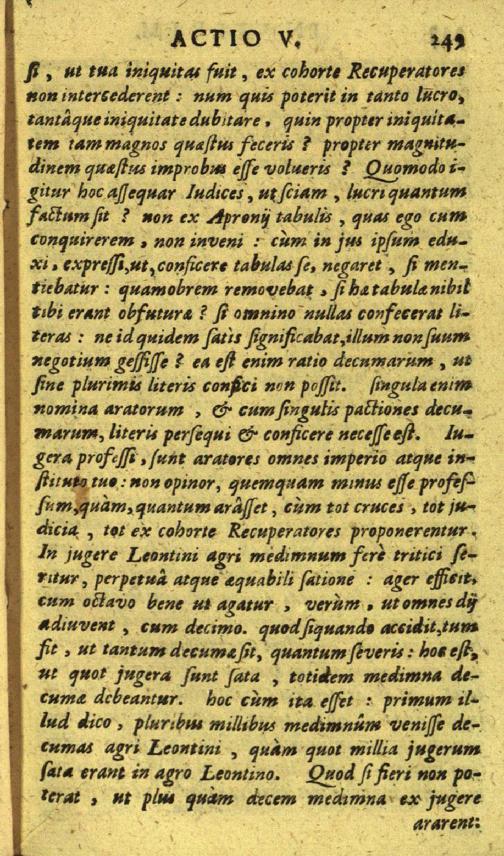 ACTIO V. 249
ſi, ut tua iniquitas fuit, ex cohorte Recuperatores
non intercederent: num quis poterit in tanto lucro,
tantâque iniquitate dubitare, quin propter iniquita-
tem tam magnos quæſtus feceris? propter magnitu-
dinem quæſtus improbus eſſe volueris? Quomodo i-
gitur hoc aſſequar Iudices, ut ſciam, lucri quantum
factum ſit? non ex Apronij tabulis, quas ego cum
conquirerem, non inveni: cùm in jus ipſum edu-
xi, expreſſi, ut, conficere tabulas ſe, negaret, ſi men-
tiebatur: quamobrem removebat, ſi hæ tabulæ nihil
tibi erant obfuturæ? ſi omnino nullas confecerat li-
teras: ne id quidem ſatis ſignificabat, illum non ſuum
negotium geſſiſſe? ea eſt enim ratio decumarum, ut
ſine plurimis literis confici non poſſit. ſingula enim
nomina aratorum, & cum ſingulis pactiones decu-
marum, literis perſequi & conficere neceſſe eſt. Iu-
gera profeſſi, ſunt aratores omnes imperio atque in-
ſtituto tuo: non opinor, quemquam minus eſſe profeſ-
ſum, quàm, quantum arâſſet, cùm tot cruces, tot ju-
dicia, tot ex cohorte Recuperatores proponerentur.
In jugere Leontini agri medimnum ferè tritici ſe-
ritur, perpetuâ atque æquabili ſatione: ager efficit,
cum octavo bene ut agatur, verùm, ut omnes dij
adiuvent, cum decimo. quod ſiquando accidit, tum
fit, ut tantum decumæ ſit, quantum ſeveris: hoc eſt,
ut quot jugera ſunt ſata, totidem medimna de-
cumæ debeantur. hoc cùm ita eſſet: primum il-
lud dico, pluribus millibus medimnûm veniſſe de-
cumas agri Leontini, quàm quot millia jugerum
ſata erant in agro Leontino. Quod ſi fieri non po-
terat, ut plus quàm decem medimna ex jugere
ararent: